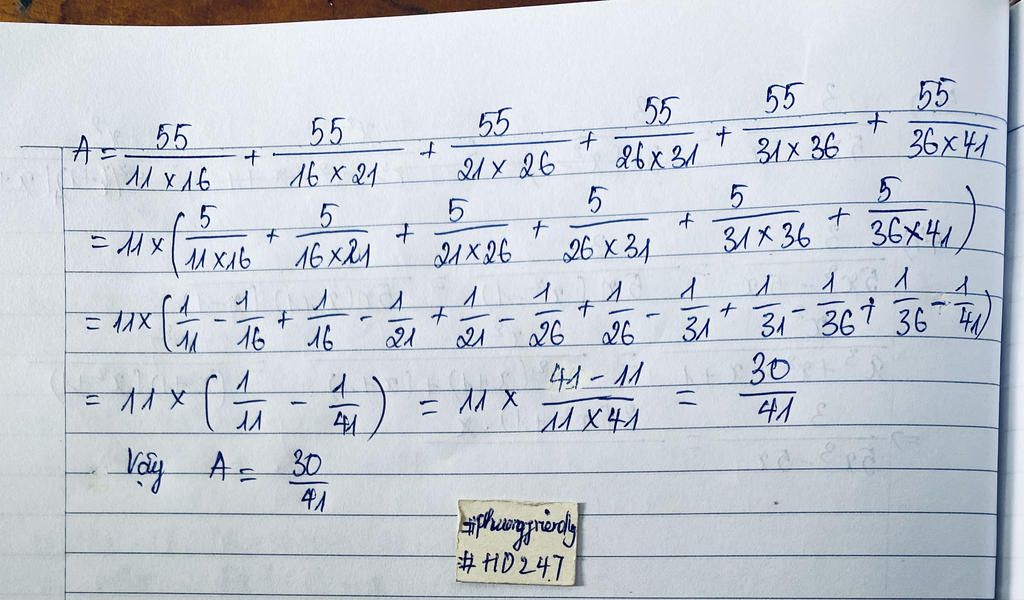 A = 55/(11×16) + 55/(16×21) + 55/(21×26) + 55/(26×31) + 55/(31×36) + 55/(36×41)
= 11×(5/(11×16) + 5/(16×21) + 5/(21×26) + 5/(26×31) + 5/(31×36) + 5/(36×41))
= 11×(1/11 − 1/16 + 1/16 − 1/21 + 1/21 − 1/26 + 1/26 − 1/31 + 1/31 − 1/36 + 1/36 − 1/41)
= 11×(1/11 − 1/41) = 11 × (41−11)/(11×41) = 30/41
Vậy A = 30/41
#HD247